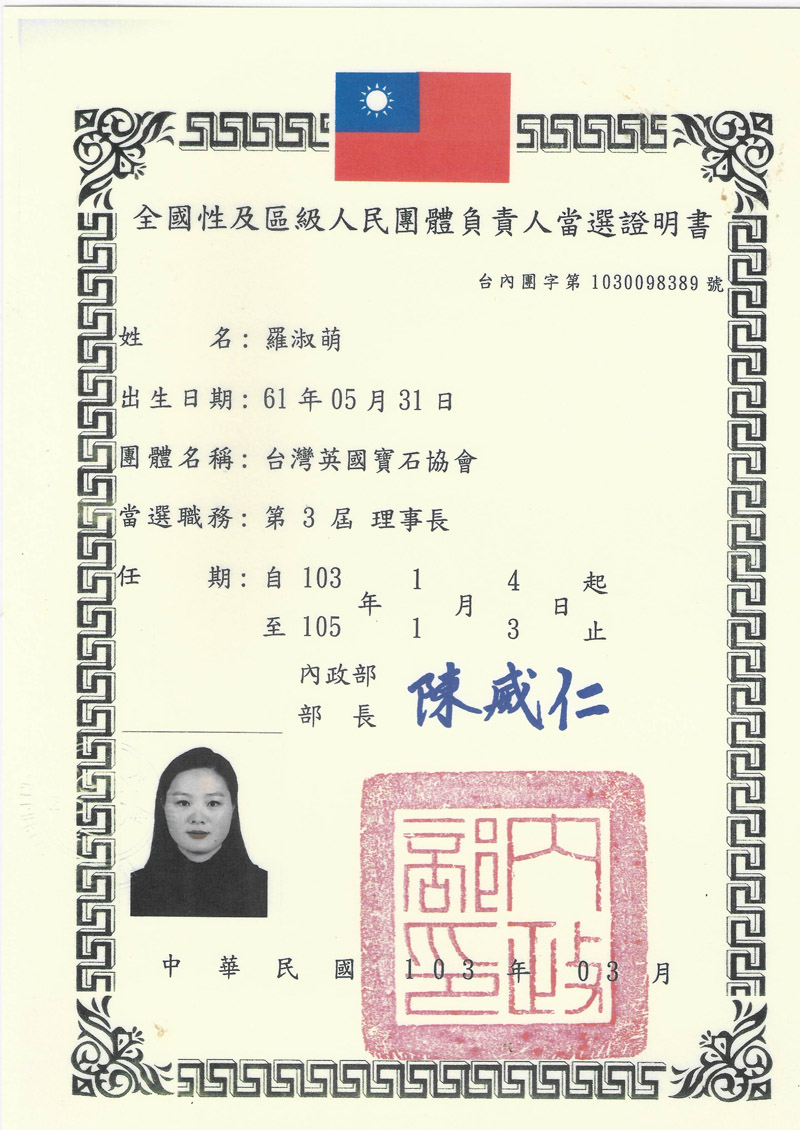 全國性及區級人民團體負責人當選證明書
台內團字第 1030098389 號
姓名：羅淑萌
出生日期：61 年 05 月 31 日
團體名稱：台灣英國寶石協會
當選職務：第 3 屆 理事長
任期：自 103 年 1 月 4 日起
至 105 年 1 月 3 日止
內政部
部長 陳威仁
內政部印
中華民國 103 年 03 月